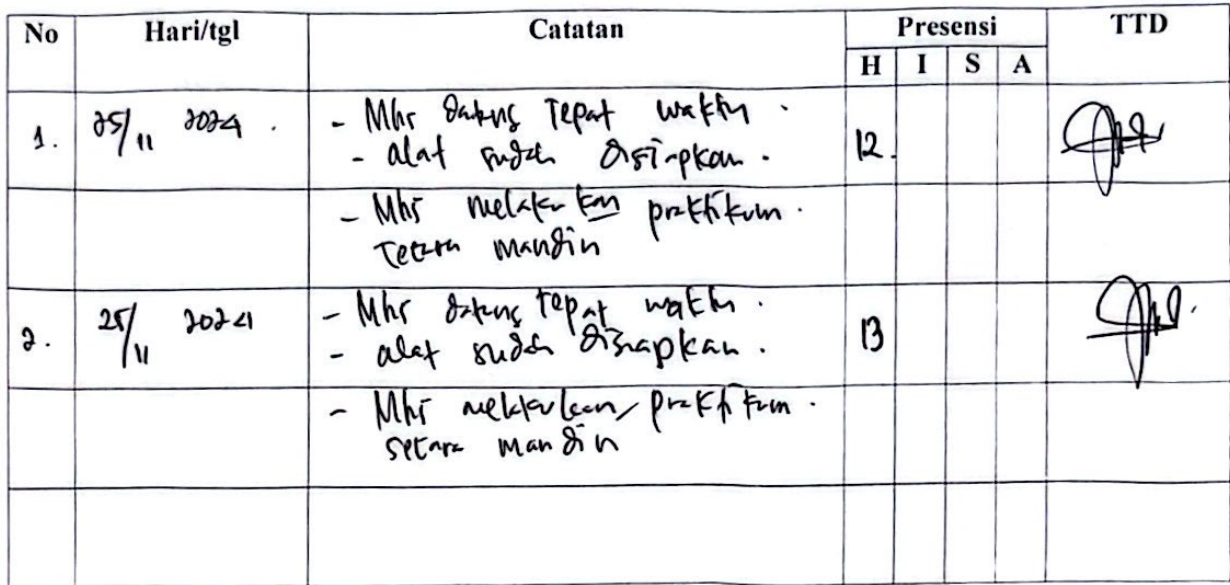 No Hari/tgl Catatan Presensi TTD
H I S A
1. 25/11 2024 . - Mhs datang tepat waktu .
- alat sudah disiapkan . 12.
- Mhs melakukan praktikum .
secara mandiri
2. 25/11 2024 - Mhs datang tepat waktu .
- alat sudah disiapkan . 13
- Mhs melakukan praktikum .
secara mandiri